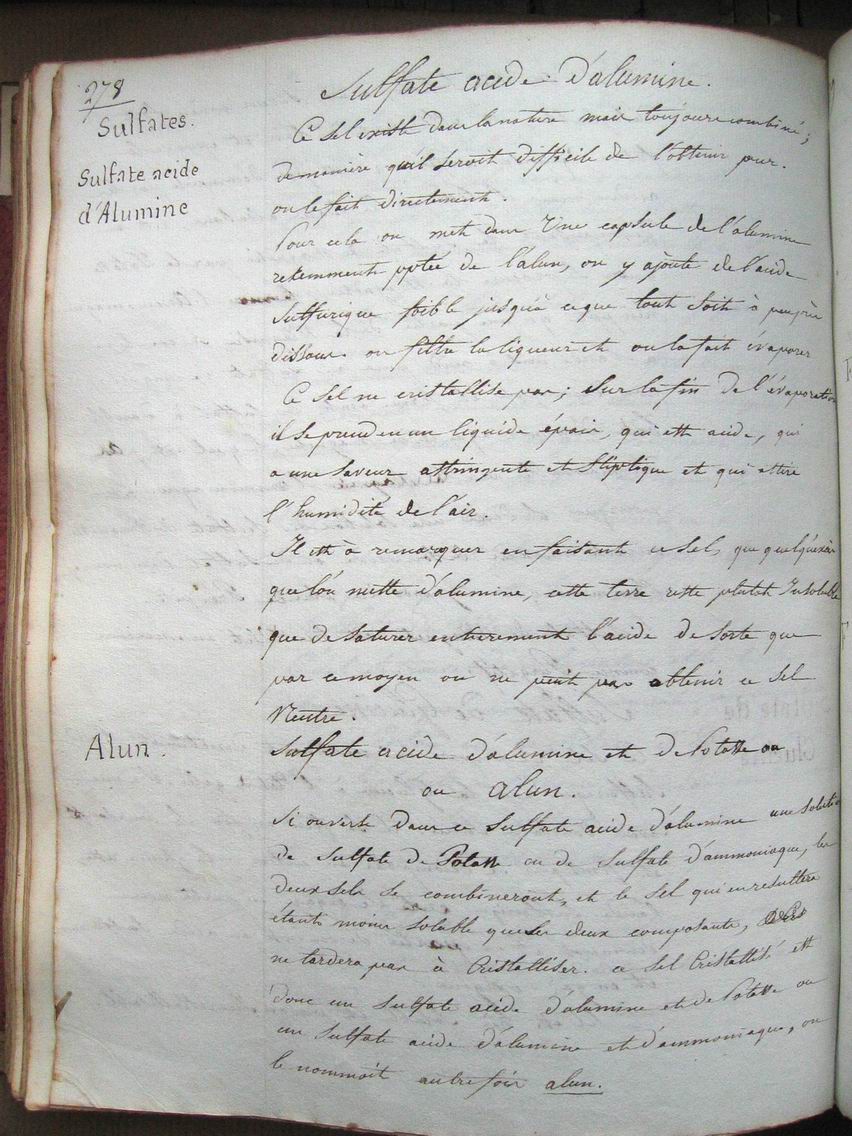 278
Sulfates.
Sulfate acide
d'Alumine
Sulfate acide d'alumine.
Ce sel existe dans la nature mais toujours combiné;
de manière qu'il seroit difficile de l'obtenir pur.
on le fait directement.
Pour cela on met dans Une capsule de l'alumine
récemment pptée de l'alun, on y ajoute de l'acide
Sulfurique foible jusqu'à ce que tout soit à peu près
dissous. on filtre la liqueur et on la fait évaporer
Ce sel ne cristallise pas; Sur la fin de l'évaporation
il se prend en un liquide épais, qui est acide, qui
a une saveur astringente et stiptique et qui attire
l'humidité de l'air.
Il est à remarquer en faisant ce sel, que quelqu'excès
que l'on mette d'alumine, cette terre reste plutot Insoluble
que de saturer entierement l'acide de sorte que
par ce moyen on ne peut pas obtenir ce sel
Neutre.
Alun.
Sulfate acide d'alumine et de Potasse ou
ou alun.
Si on verse dans ce sulfate acide d'alumine une solution
de sulfate de Potasse ou de sulfate d'ammoniaque, les
deux sels se combineront, et le sel qui en resultera
étant moins soluble que les deux composants,
ne tardera pas à Cristalliser. ce sel Cristallisé est
donc un sulfate acide d'alumine et de Potasse ou
un sulfate acide d'alumine et d'ammoniaque, on
le nommoit autrefois alun.